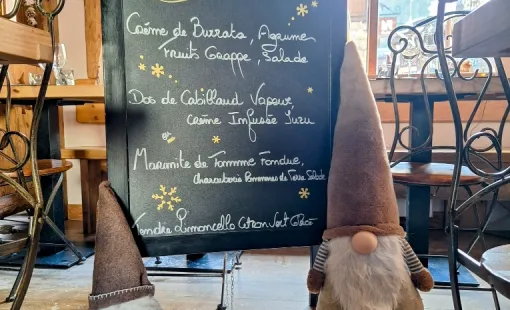 Crème de Burrata, Agrume
Fruits Grappe, Salade
Dos de Cabillaud Vapeur,
Crème Infusée Yuzu
Marmite de Tomme Fondue,
Charcuterie Pommes de Terre Salade
Tendre Limoncello Citron Vert Glacé